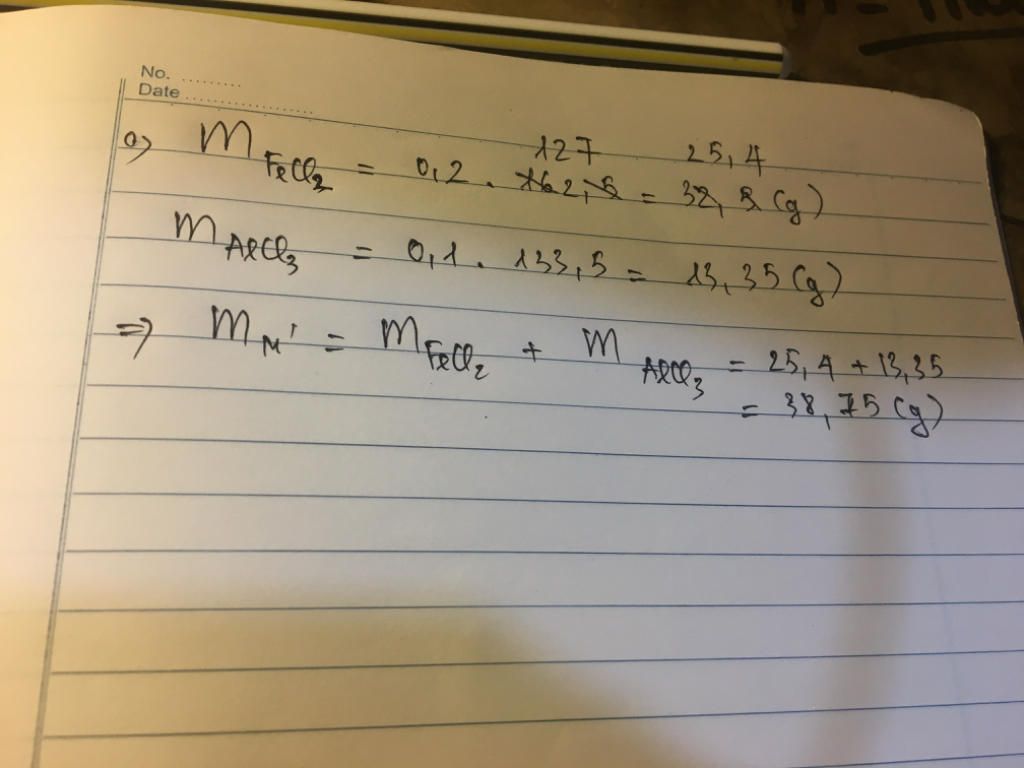 No. .........
Date ...................
=> m FeCl2 = 0,2 . 162,5 = 32,5 (g)
127 25,4
m AlCl3 = 0,1 . 133,5 = 13,35 (g)
=> m M' = m FeCl2 + m AlCl3 = 25,4 + 13,35
= 38,75 (g)